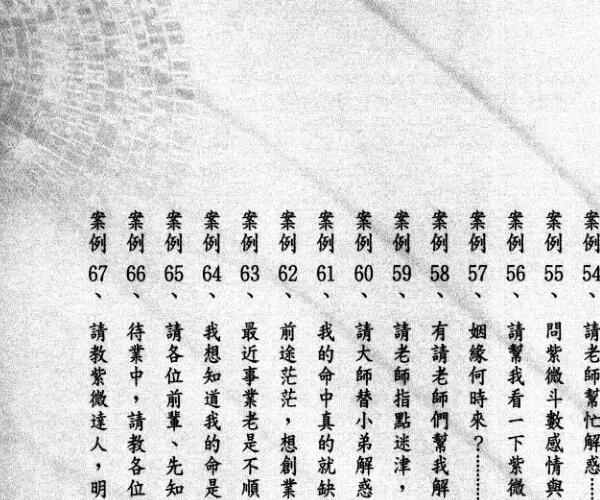 案例54、請老師幫忙解惑……
案例55、問紫微斗數感情與
案例56、請幫我看一下紫微
案例57、姻緣何時來？……
案例58、有請老師們幫我解
案例59、請老師指點迷津，
案例60、請大師替小弟解惑
案例61、我的命中真的就缺
案例62、前途茫茫，想創業
案例63、最近事業老是不順
案例64、我想知道我的命是
案例65、請各位前輩、先知
案例66、待業中，請教各位
案例67、請教紫微達人，明